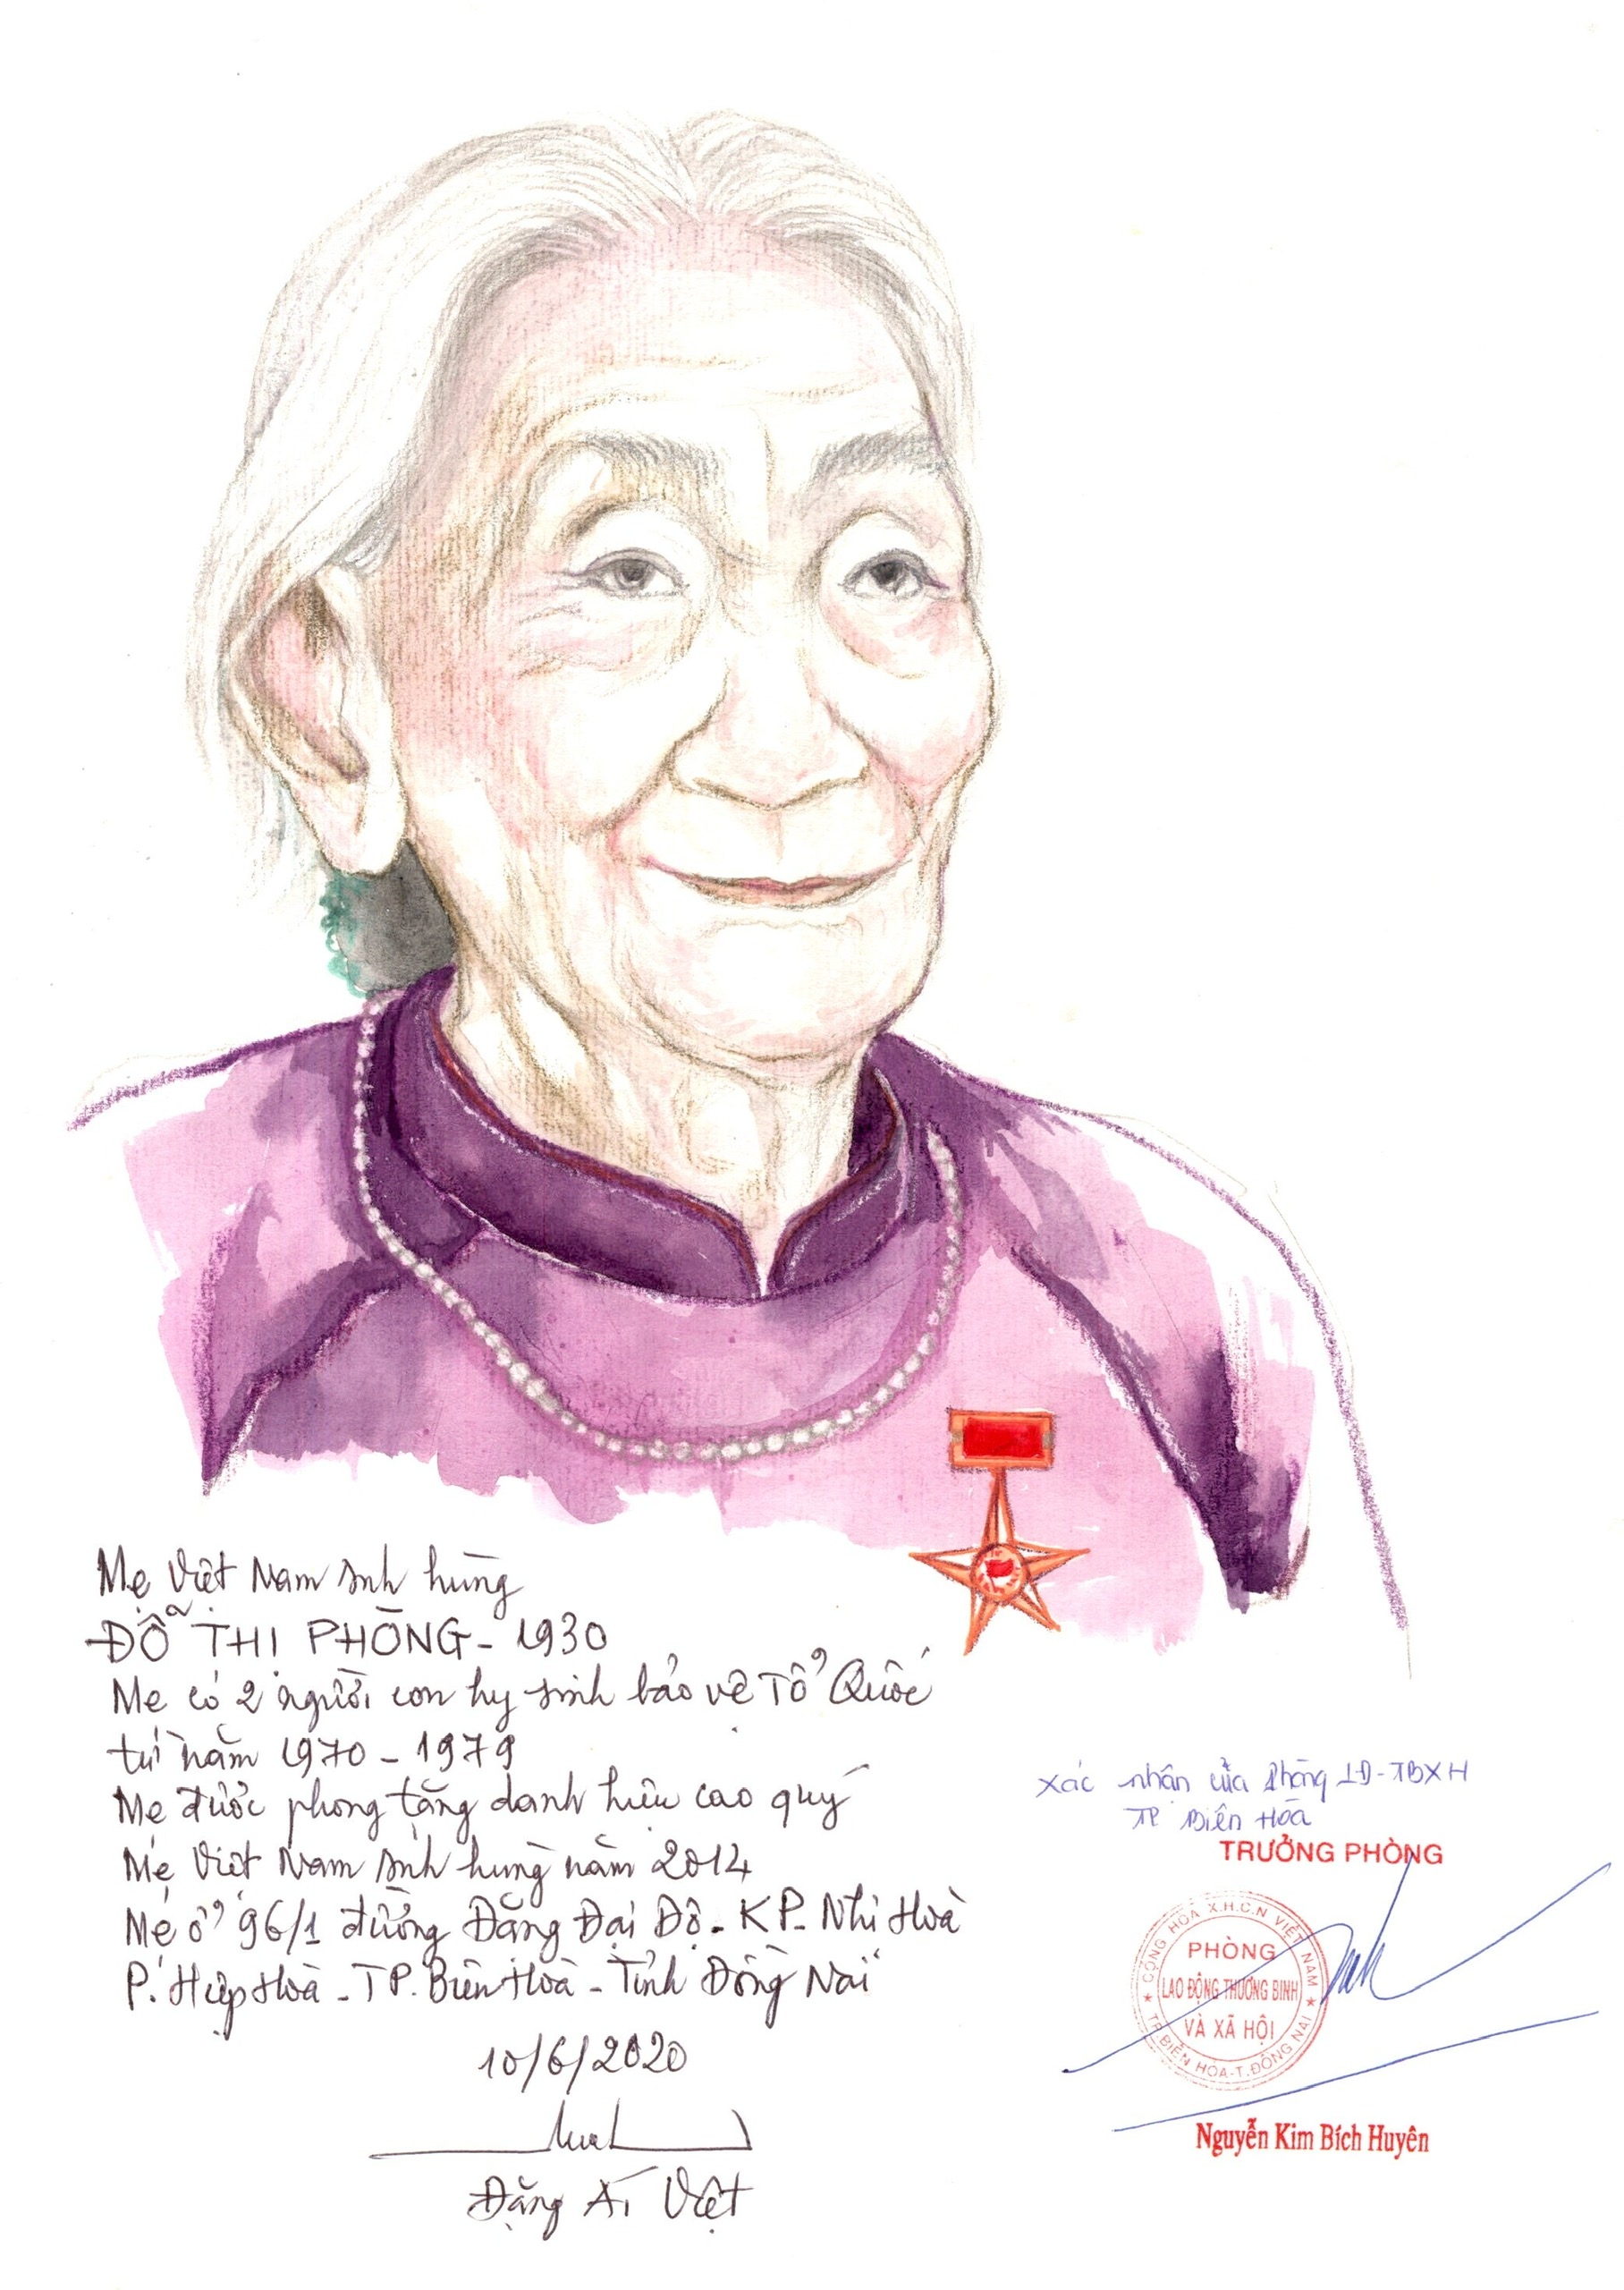 Mẹ Việt Nam anh hùng
ĐỖ THỊ PHÒNG - 1930
Mẹ có 2 người con hy sinh bảo vệ Tổ Quốc
từ năm 1970 - 1979
Mẹ được phong tặng danh hiệu cao quý
Mẹ Việt Nam anh hùng năm 2014
Mẹ ở 96/1 đường Đặng Đại Độ - KP. Nhị Hoà
P. Hiệp Hoà - TP. Biên Hoà - Tỉnh Đồng Nai
10/6/2020
Đặng Ái Việt
Xác nhận của Phòng LĐ-TBXH
TP Biên Hòa
TRƯỞNG PHÒNG
CỘNG HOÀ X.H.C.N VIỆT NAM
PHÒNG
LAO ĐỘNG THƯƠNG BINH
VÀ XÃ HỘI
★ TP.BIÊN HÒA-T.ĐỒNG NAI ★
Nguyễn Kim Bích Huyên